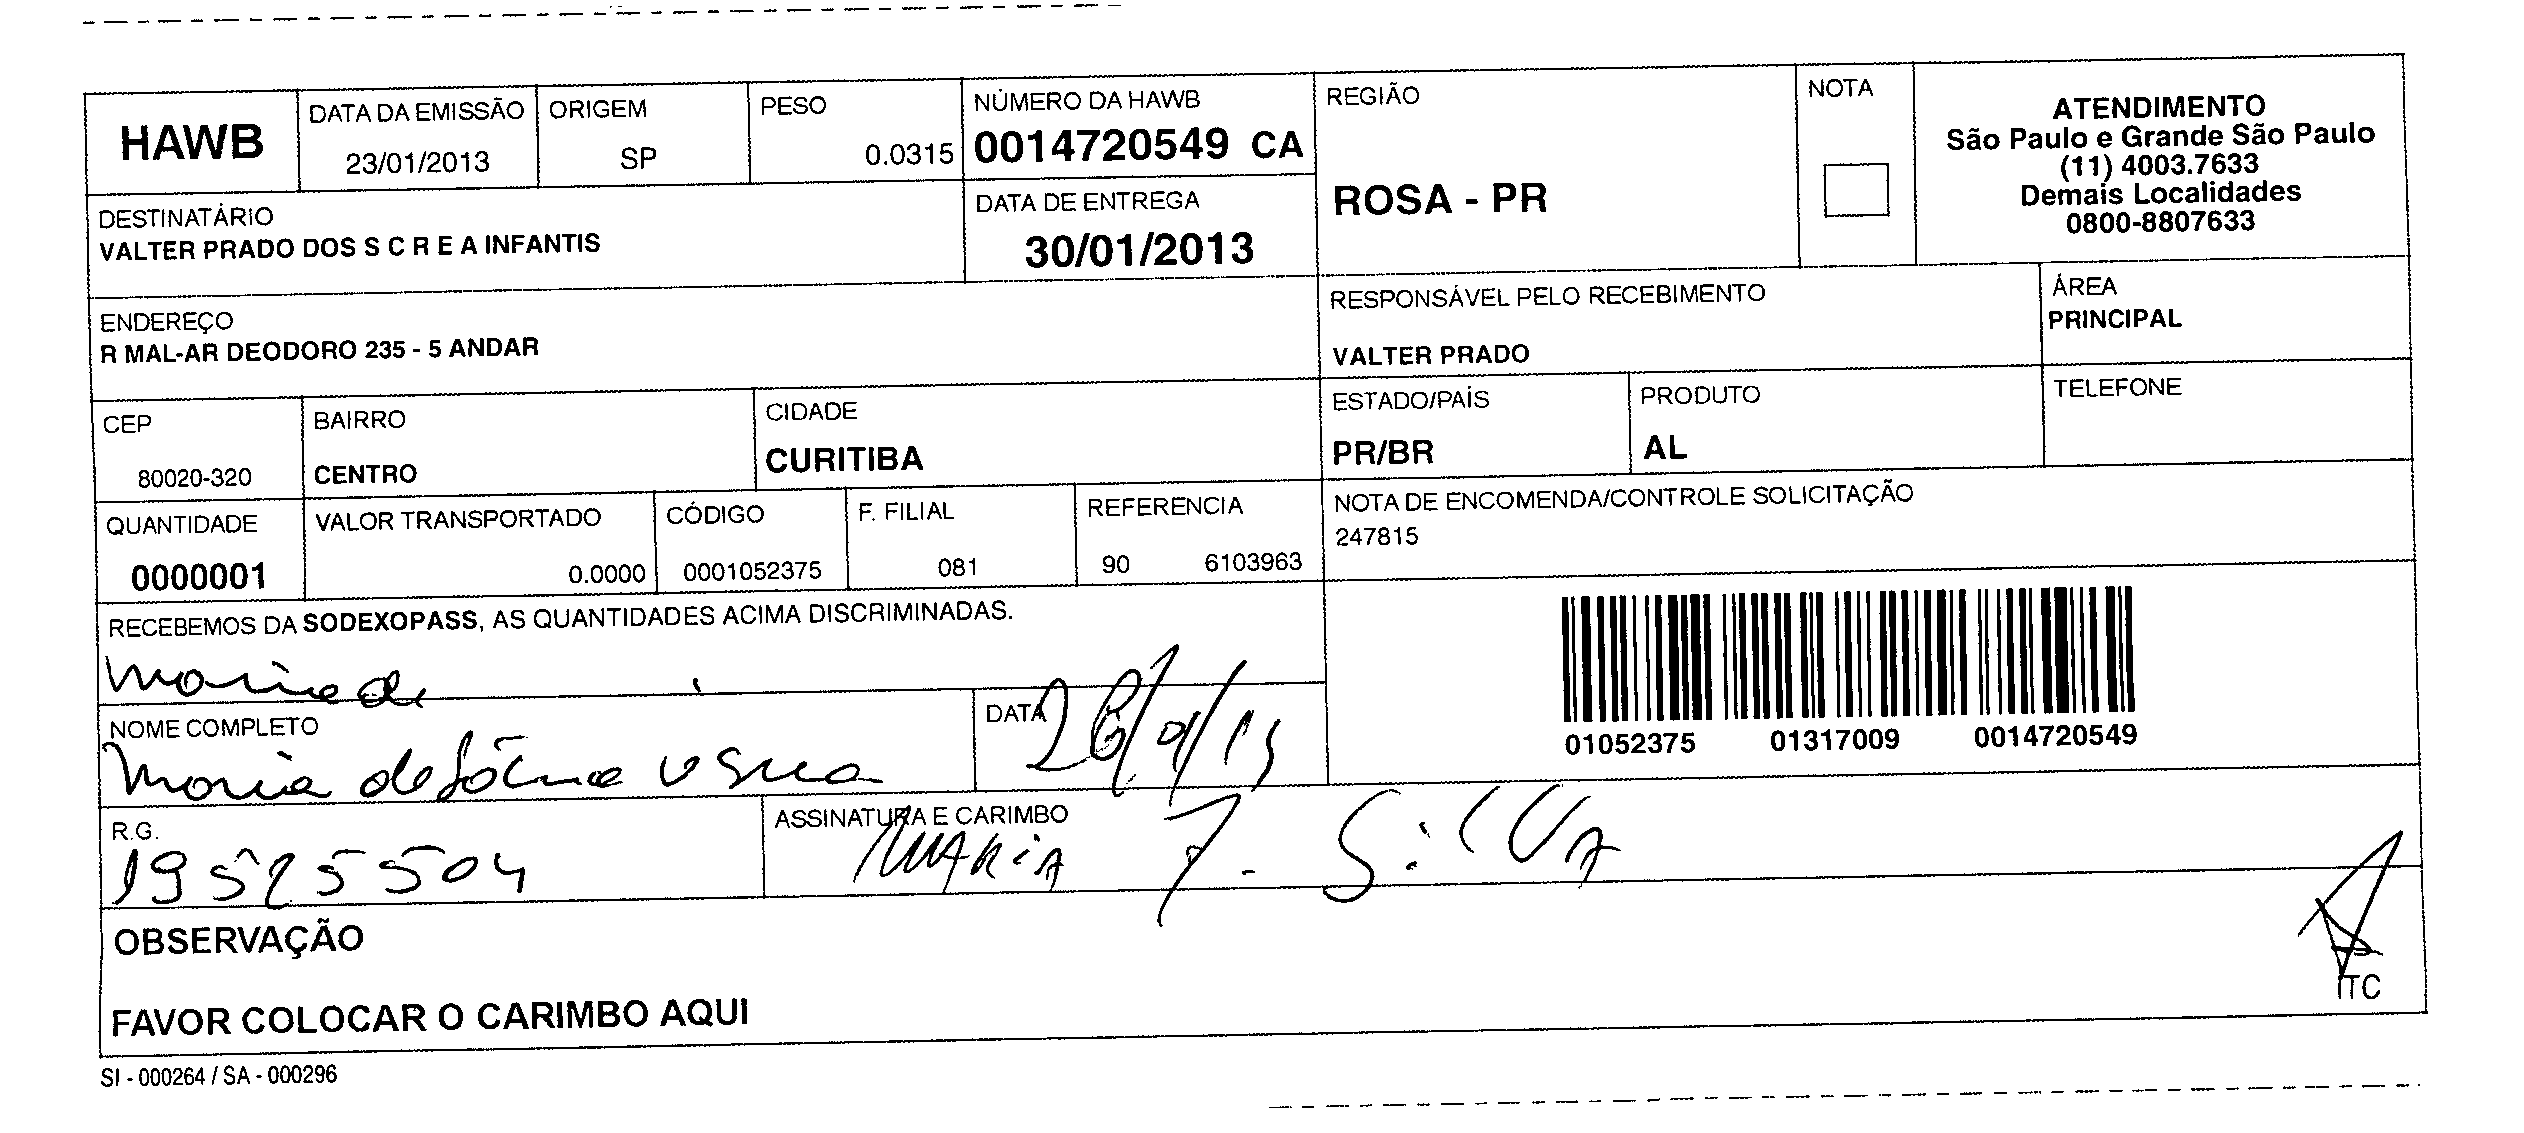 HAWB
DATA DA EMISSÃO
23/01/2013
ORIGEM
SP
PESO
0.0315
NÚMERO DA HAWB
0014720549 CA
REGIÃO
ROSA - PR
NOTA
ATENDIMENTO
São Paulo e Grande São Paulo
(11) 4003.7633
Demais Localidades
0800-8807633
DESTINATÁRIO
VALTER PRADO DOS S C R E A INFANTIS
DATA DE ENTREGA
30/01/2013
ENDEREÇO
R MAL-AR DEODORO 235 - 5 ANDAR
RESPONSÁVEL PELO RECEBIMENTO
VALTER PRADO
ÁREA
PRINCIPAL
CEP
80020-320
BAIRRO
CENTRO
CIDADE
CURITIBA
ESTADO/PAÍS
PR/BR
PRODUTO
AL
TELEFONE
QUANTIDADE
0000001
VALOR TRANSPORTADO
0.0000
CÓDIGO
0001052375
F. FILIAL
081
REFERENCIA
90 6103963
NOTA DE ENCOMENDA/CONTROLE SOLICITAÇÃO
247815
RECEBEMOS DA SODEXOPASS, AS QUANTIDADES ACIMA DISCRIMINADAS.
Maria de
01052375 01317009 0014720549
NOME COMPLETO
Maria de Fátima
DATA
R.G.
ASSINATURA E CARIMBO
MARIA F. SiLVA
OBSERVAÇÃO
FAVOR COLOCAR O CARIMBO AQUI
ITC
SI - 000264 / SA - 000296